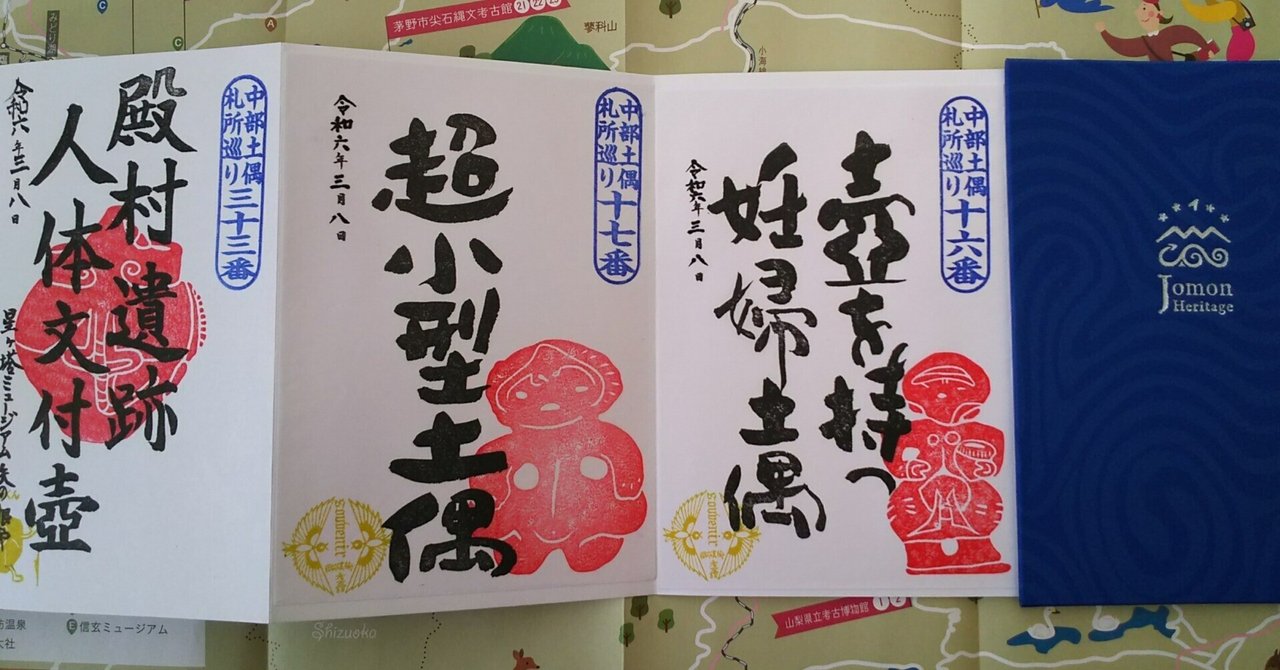 茅野市尖石縄文考古館 21 22 23
蓼科山
小海線
みどり湖
C
C
A
中部土偶
札所巡り三十三番
殿村遺跡
人体文付壺
令和六年三月八日
星ヶ塔ミュージアム
中部土偶
札所巡り十七番
超小型土偶
令和六年三月八日
中部土偶
札所巡り十六番
壺を持つ
妊婦土偶
令和六年三月八日
Jomon
Heritage
温泉
大社
E 信玄ミュージアム
Shizuoka
山梨県立考古博物館 1 2